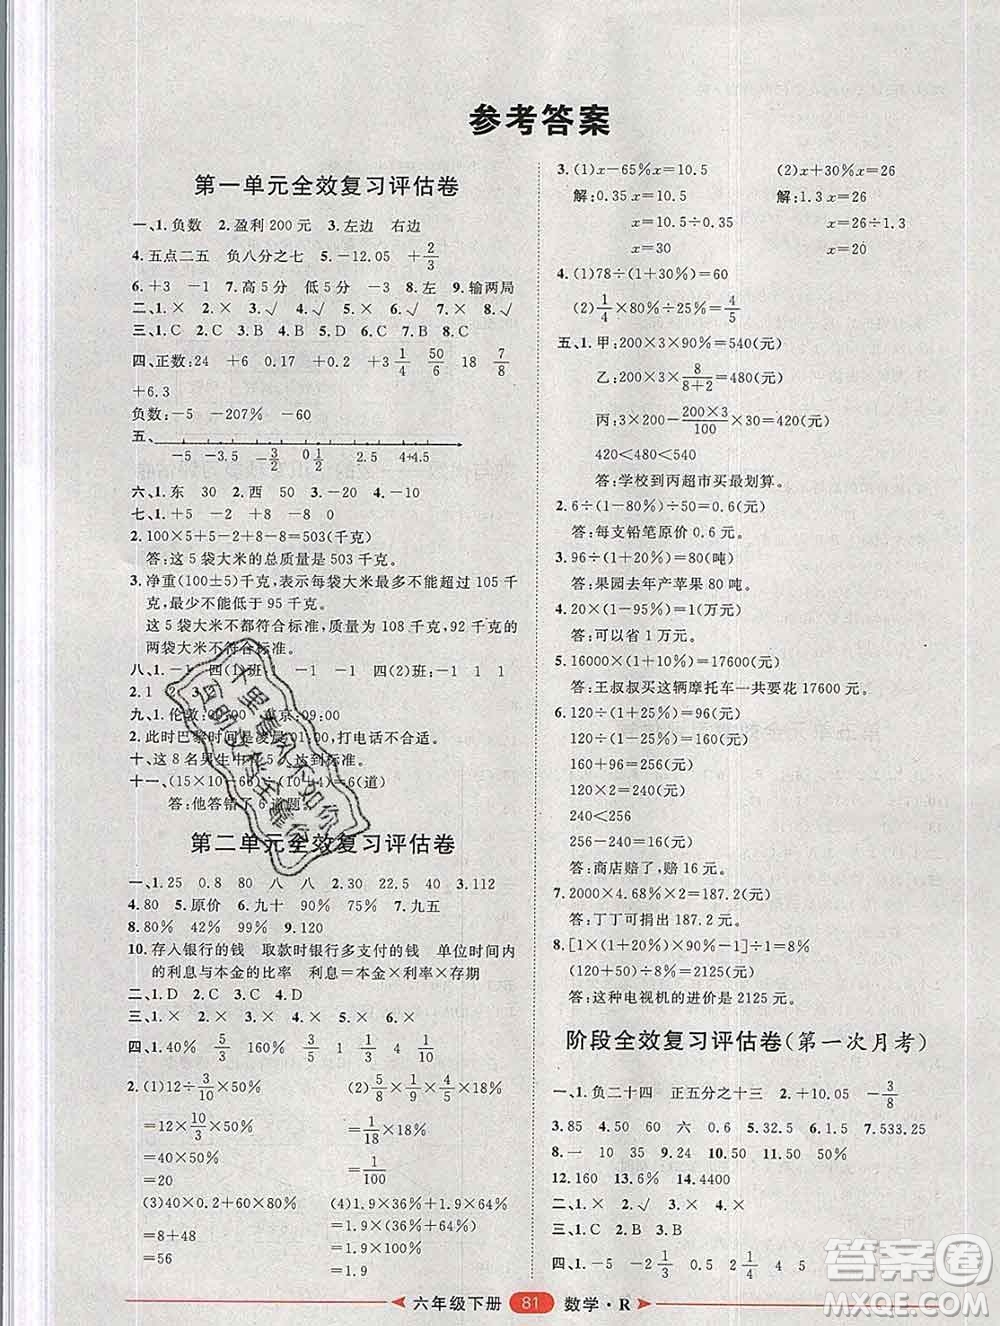 参考答案
第一单元全效复习评估卷
一、1.负数 2.盈利200元 3.左边 右边
4.五点二五 负八分之七 5.－12.05 ＋2/3
6.＋3 －1 7.高5分 低5分 －3 8.左 9.输两局
二、1.× 2.× 3.√ 4.× 5.√ 6.√ 7.× 8.×
三、1.C 2.C 3.B 4.B 5.B 6.C 7.B 8.C
四、正数:24 ＋6 0.17 ＋0.2 ＋3 1/4 50/6 18 7/8
＋6.3
负数:－5 －207% －60
五、
－5 －3.5 －3/2 0 1/2 2.5 4 ＋4.5
六、1.东 30 2.西 50 3.20 4.－10
七、1.＋5 －2 －8 ＋8 0
2.100×5＋5－2－8＋8＝503(千克)
答:这5袋大米的总质量是503千克。
3.净重(100±5)千克,表示每袋大米最多不能超过105千
克,最少不能低于95千克。
这5袋大米不都符合标准,质量为108千克,92千克的
两袋大米不符合标准。
八、1.－1 四(1)班:1 －1 －1 四(2)班:－1 1 1
2.1 2 3
九、1.伦敦:01:00 北京:09:00
2.此时巴黎时间是凌晨01:00,打电话不合适。
十、这8名男生中有5人达到标准。
十一、(15×10－66)÷(10＋4)＝6(道)
答:他答错了6道题。
第二单元全效复习评估卷
一、1.25 0.8 80 八 八 2.30 22.5 40 3.112
4.80 5.原价 6.九十 90% 75% 7.九五
8.80% 42% 99% 9.120
10.存入银行的钱 取款时银行多支付的钱 单位时间内
的利息与本金的比率 利息＝本金×利率×存期
二、1.D 2.C 3.C 4.D 5.A
三、1.× 2.× 3.× 4.× 5.×
四、1.40%
2.(1)12÷3/10×50%
＝12×10/3×50%
＝40×50%
＝20
(2)3/8÷6 3/4×18%
＝1/18×18%
＝1/100
(3)40×0.2＋60×80%
＝8＋48
＝56
(4)1.9×36%＋1.9×64%
＝1.9×(36%＋64%)
＝1.9×1
＝1.9
3.(1)x－65%x＝10.5
解:0.35x＝10.5
x＝10.5÷0.35
x＝30
(2)x＋30%x＝26
解:1.3x＝26
x＝26÷1.3
x＝20
4.(1)78÷(1＋30%)＝60
(2)1/4×80%÷25%＝4/5
五、1.甲:200×3×90%＝540(元)
乙:200×3×8/8＋2＝480(元)
丙:3×200－200×3/100×30＝420(元)
420<480<540
答:学校到丙超市买最划算。
2.6÷(1－80%)÷50＝0.6(元)
答:每支铅笔原价0.6元。
3.96÷(1＋20%)＝80(吨)
答:果园去年产苹果80吨。
4.20×(1－95%)＝1(万元)
答:可以省1万元。
5.16000×(1＋10%)＝17600(元)
答:王叔叔买这辆摩托车一共要花17600元。
6.120÷(1＋25%)＝96(元)
120÷(1－25%)＝160(元)
160＋96＝256(元)
120×2＝240(元)
240<256
256－240＝16(元)
答:商店赔了,赔16元。
7.2000×4.68%×2＝187.2(元)
答:丁丁可捐出187.2元。
8.[1×(1＋20%)×90%－1]÷1＝8%
(120＋50)÷8%＝2125(元)
答:这种电视机的进价是2125元。
阶段全效复习评估卷(第一次月考)
一、1.负二十四 正五分之十三 2.＋10.05 －3/8
3.85 4.50 60 六 5.32.5 6.1.5 7.533.25
8.一 10 35 9.24 10.150 11.50%
12.160 13.6% 14.4400
二、1.× 2.√ 3.× 4.×
三、1.C 2.B 3.B
四、1.－5 －2 1/3 0.5 2 4 1/2
六年级下册 81 数学·R
千里春风不如你
互助文学生靠你
答案圈
MXQE.COM